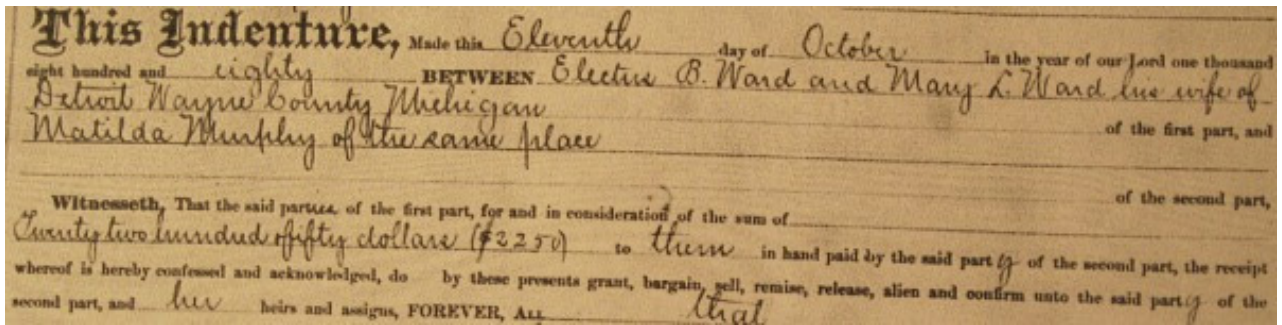 This Indenture, Made this Eleventh day of October in the year of our Lord one thousand
eight hundred and eighty BETWEEN Electus B. Ward and Mary L. Ward his wife of
Detroit Wayne County Michigan
of the first part, and
Matilda Murphy of the same place
of the second part,
Witnesseth, That the said parties of the first part, for and in consideration of the sum of
Twenty two hundred & fifty dollars ($2250) to them in hand paid by the said party of the second part, the receipt
whereof is hereby confessed and acknowledged, do by these presents grant, bargain, sell, remise, release, alien and confirm unto the said party of the
second part, and her heirs and assigns, FOREVER, ALL that